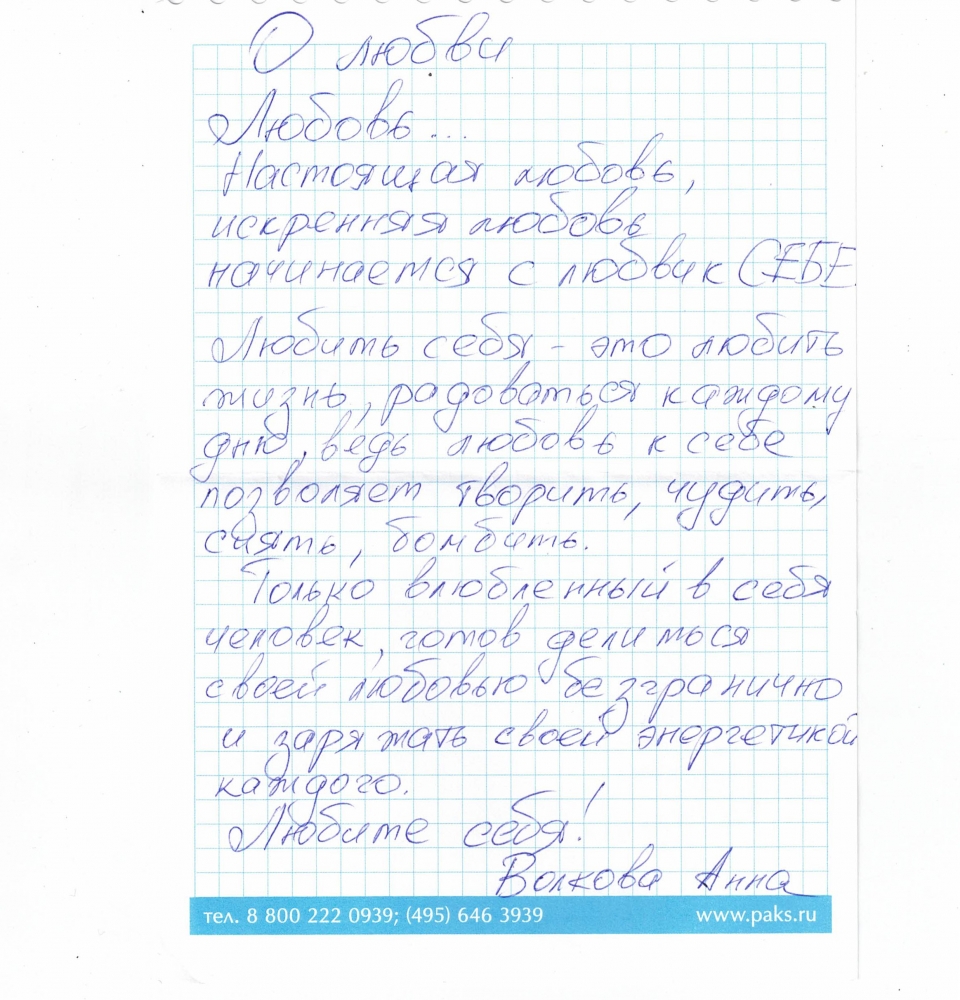 О любви
Любовь...
Настоящая любовь,
искренняя любовь
начинается с любви к СЕБЕ
Любить себя - это любить
жизнь, радоваться каждому
дню, ведь любовь к себе
позволяет творить, чудить,
сиять, бомбить.
Только влюбленный в себя
человек, готов делиться
своей любовью безгранично
и заряжать своей энергетикой
каждого.
Любите себя!
Волкова Анна
тел. 8 800 222 0939; (495) 646 3939 www.paks.ru